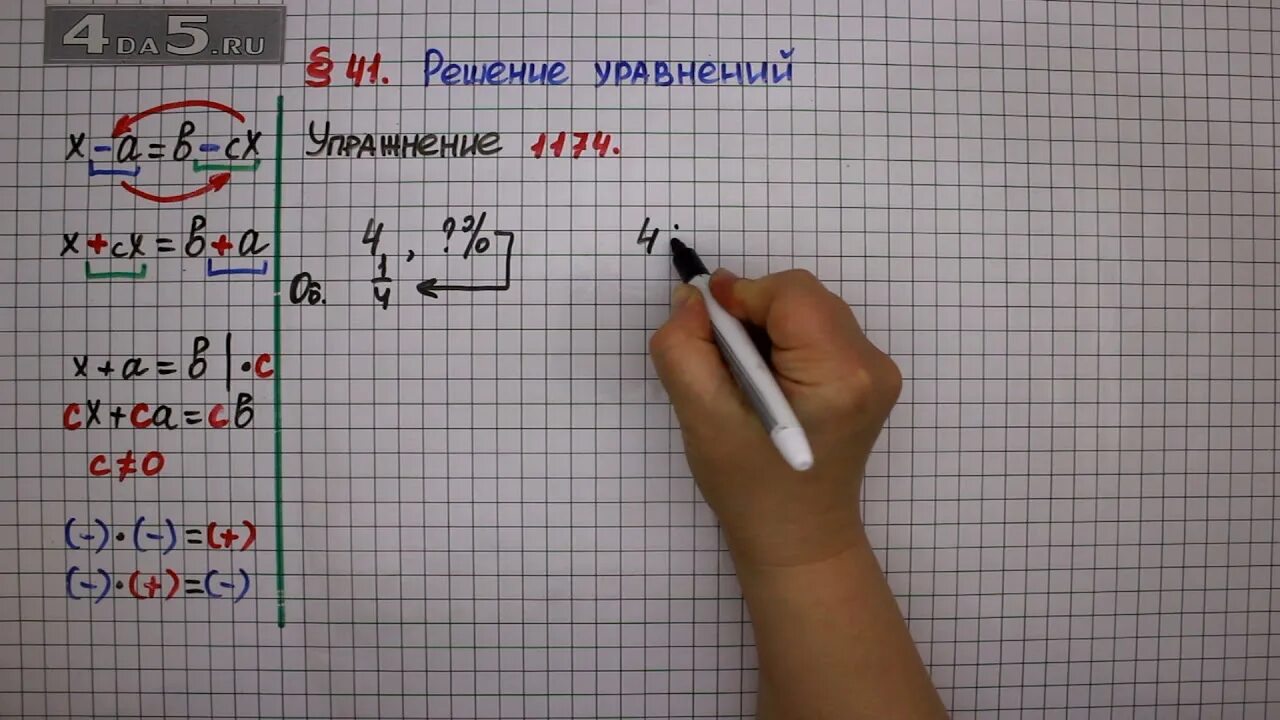 4DA5.RU
§ 41. Решение уравнений
x - a = в - cx
x + cx = в + a
x + a = в | · c
cx + ca = cв
c ≠ 0
(-) · (-) = (+)
(-) · (+) = (-)
Упражнение 1174.
4 , ?%
Об. 1/4
4 :